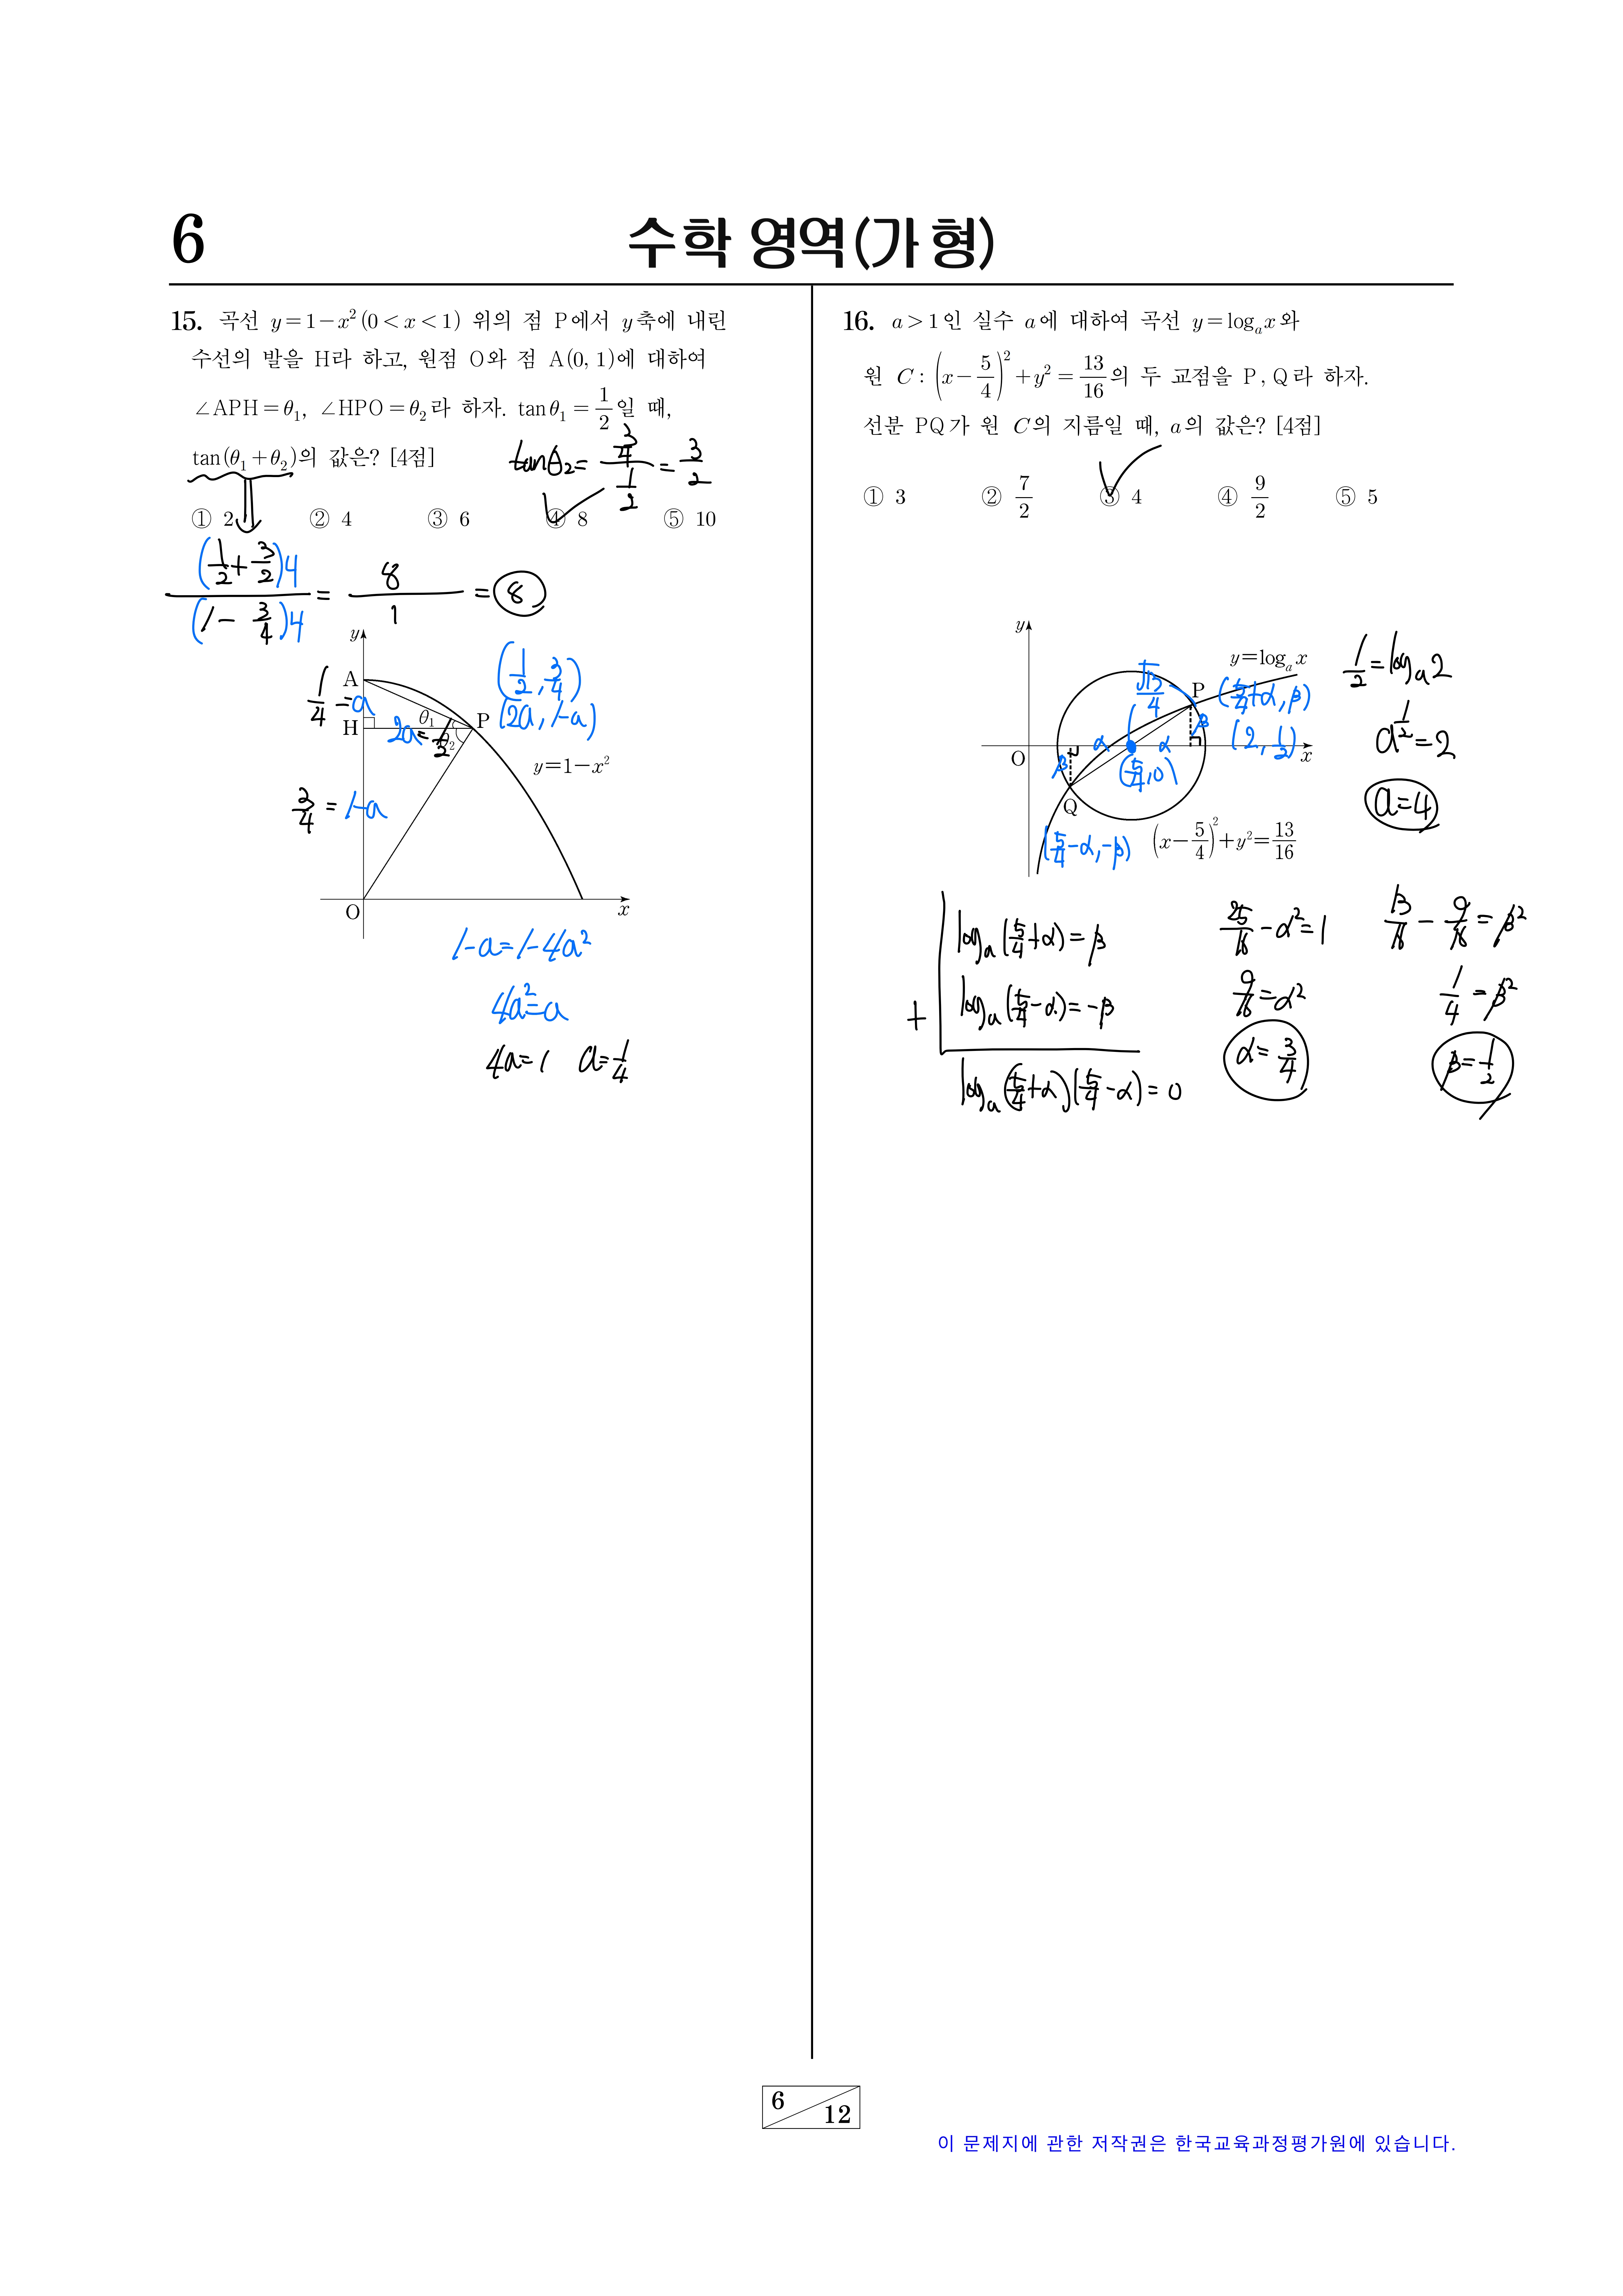 6
수학 영역(가 형)
15. 곡선 y=1−x²(0<x<1) 위의 점 P에서 y축에 내린
수선의 발을 H라 하고, 원점 O와 점 A(0, 1)에 대하여
∠APH=θ₁, ∠HPO=θ₂라 하자. tanθ₁=1/2일 때,
tan(θ₁+θ₂)의 값은? [4점]
tanθ₂= (3/4)/(1/2) = 3/2
① 2 ② 4 ③ 6 ④ 8 ⑤ 10
(1/2+3/2)4 / (1−3/4)4 = 8/1 = 8
y
A
1/4 =a
H
θ₁
2a=1/2
θ₂
P
(1/2, 3/4)
(2a, 1-a)
y=1−x²
3/4 = 1-a
O
x
1-a=1-4a²
4a²=a
4a=1 a=1/4
16. a>1인 실수 a에 대하여 곡선 y=logₐx와
원 C : (x−5/4)²+y²=13/16의 두 교점을 P, Q라 하자.
선분 PQ가 원 C의 지름일 때, a의 값은? [4점]
① 3 ② 7/2 ③ 4 ④ 9/2 ⑤ 5
y
y=logₐx
√13/4
P
(5/4+α, β)
(2, 1/2)
β
α α
O
x
β
(5/4, 0)
Q
(5/4-α, -β)
(x−5/4)²+y²=13/16
1/2=logₐ2
a^(1/2)=2
a=4
logₐ(5/4+α)=β
+ logₐ(5/4-α)=-β
logₐ(5/4+α)(5/4-α)=0
25/16-α²=1
9/16=α²
α=3/4
13/16 - 9/16 = β²
1/4 = β²
β=1/2
6
12
이 문제지에 관한 저작권은 한국교육과정평가원에 있습니다.